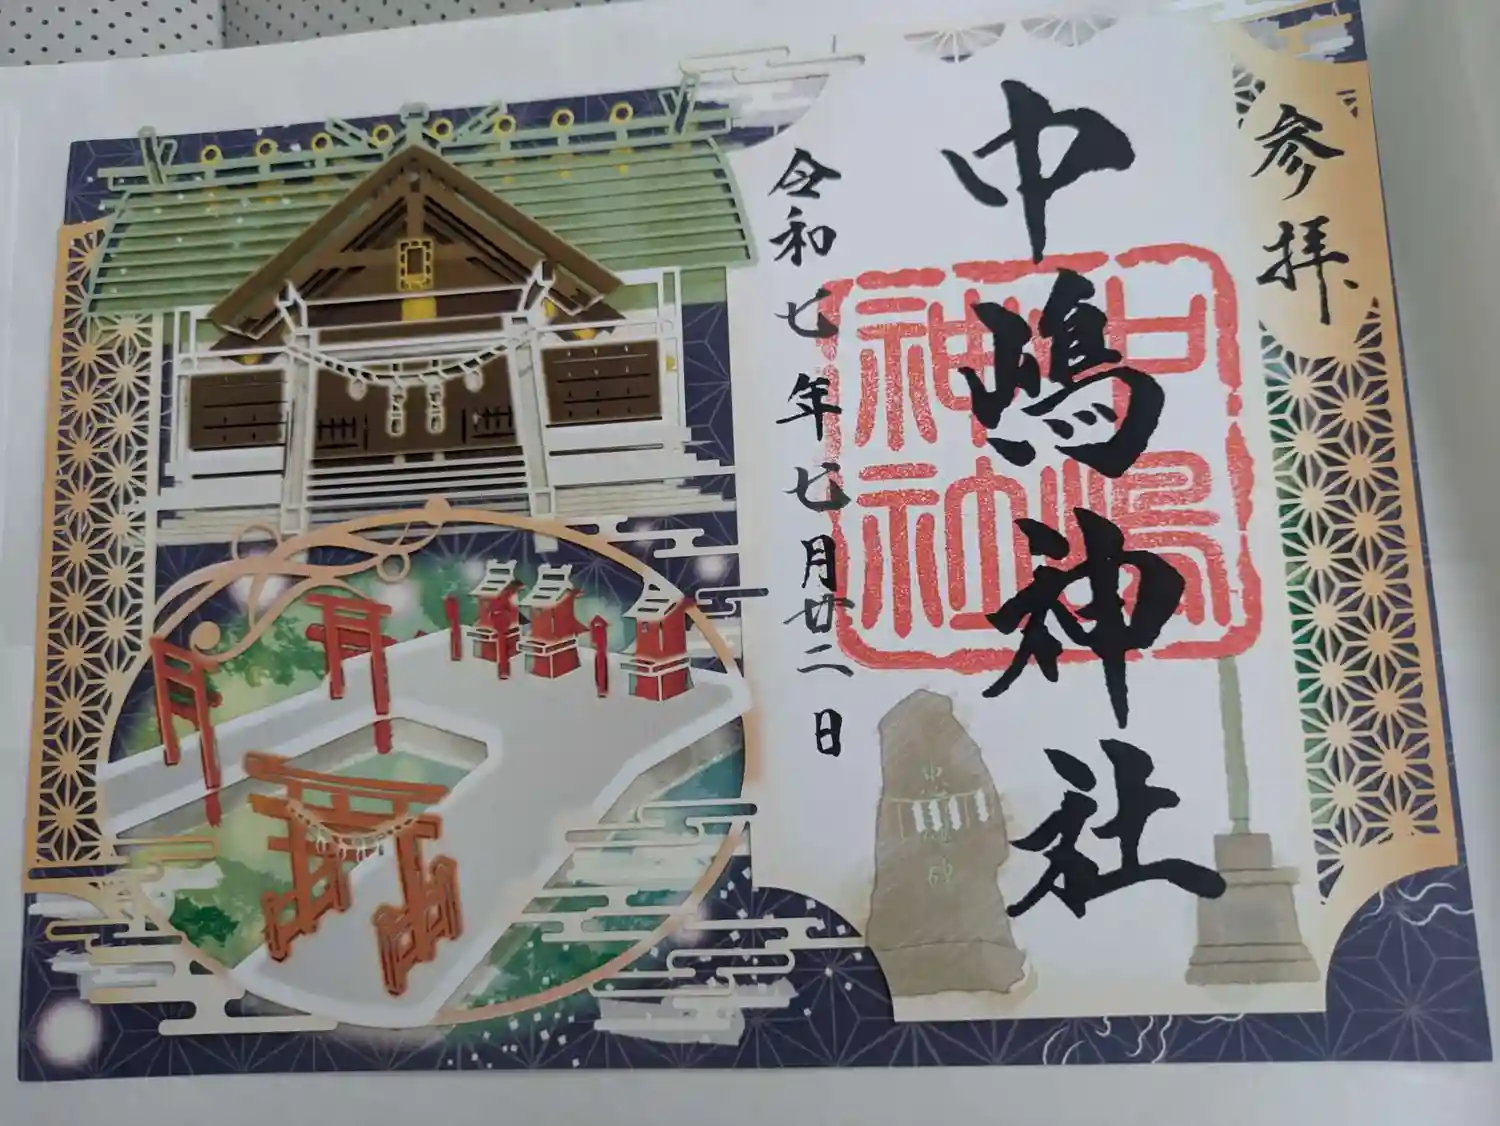 参拝
中嶋神社
中嶋神社
令和七年七月廿二日
忠魂碑